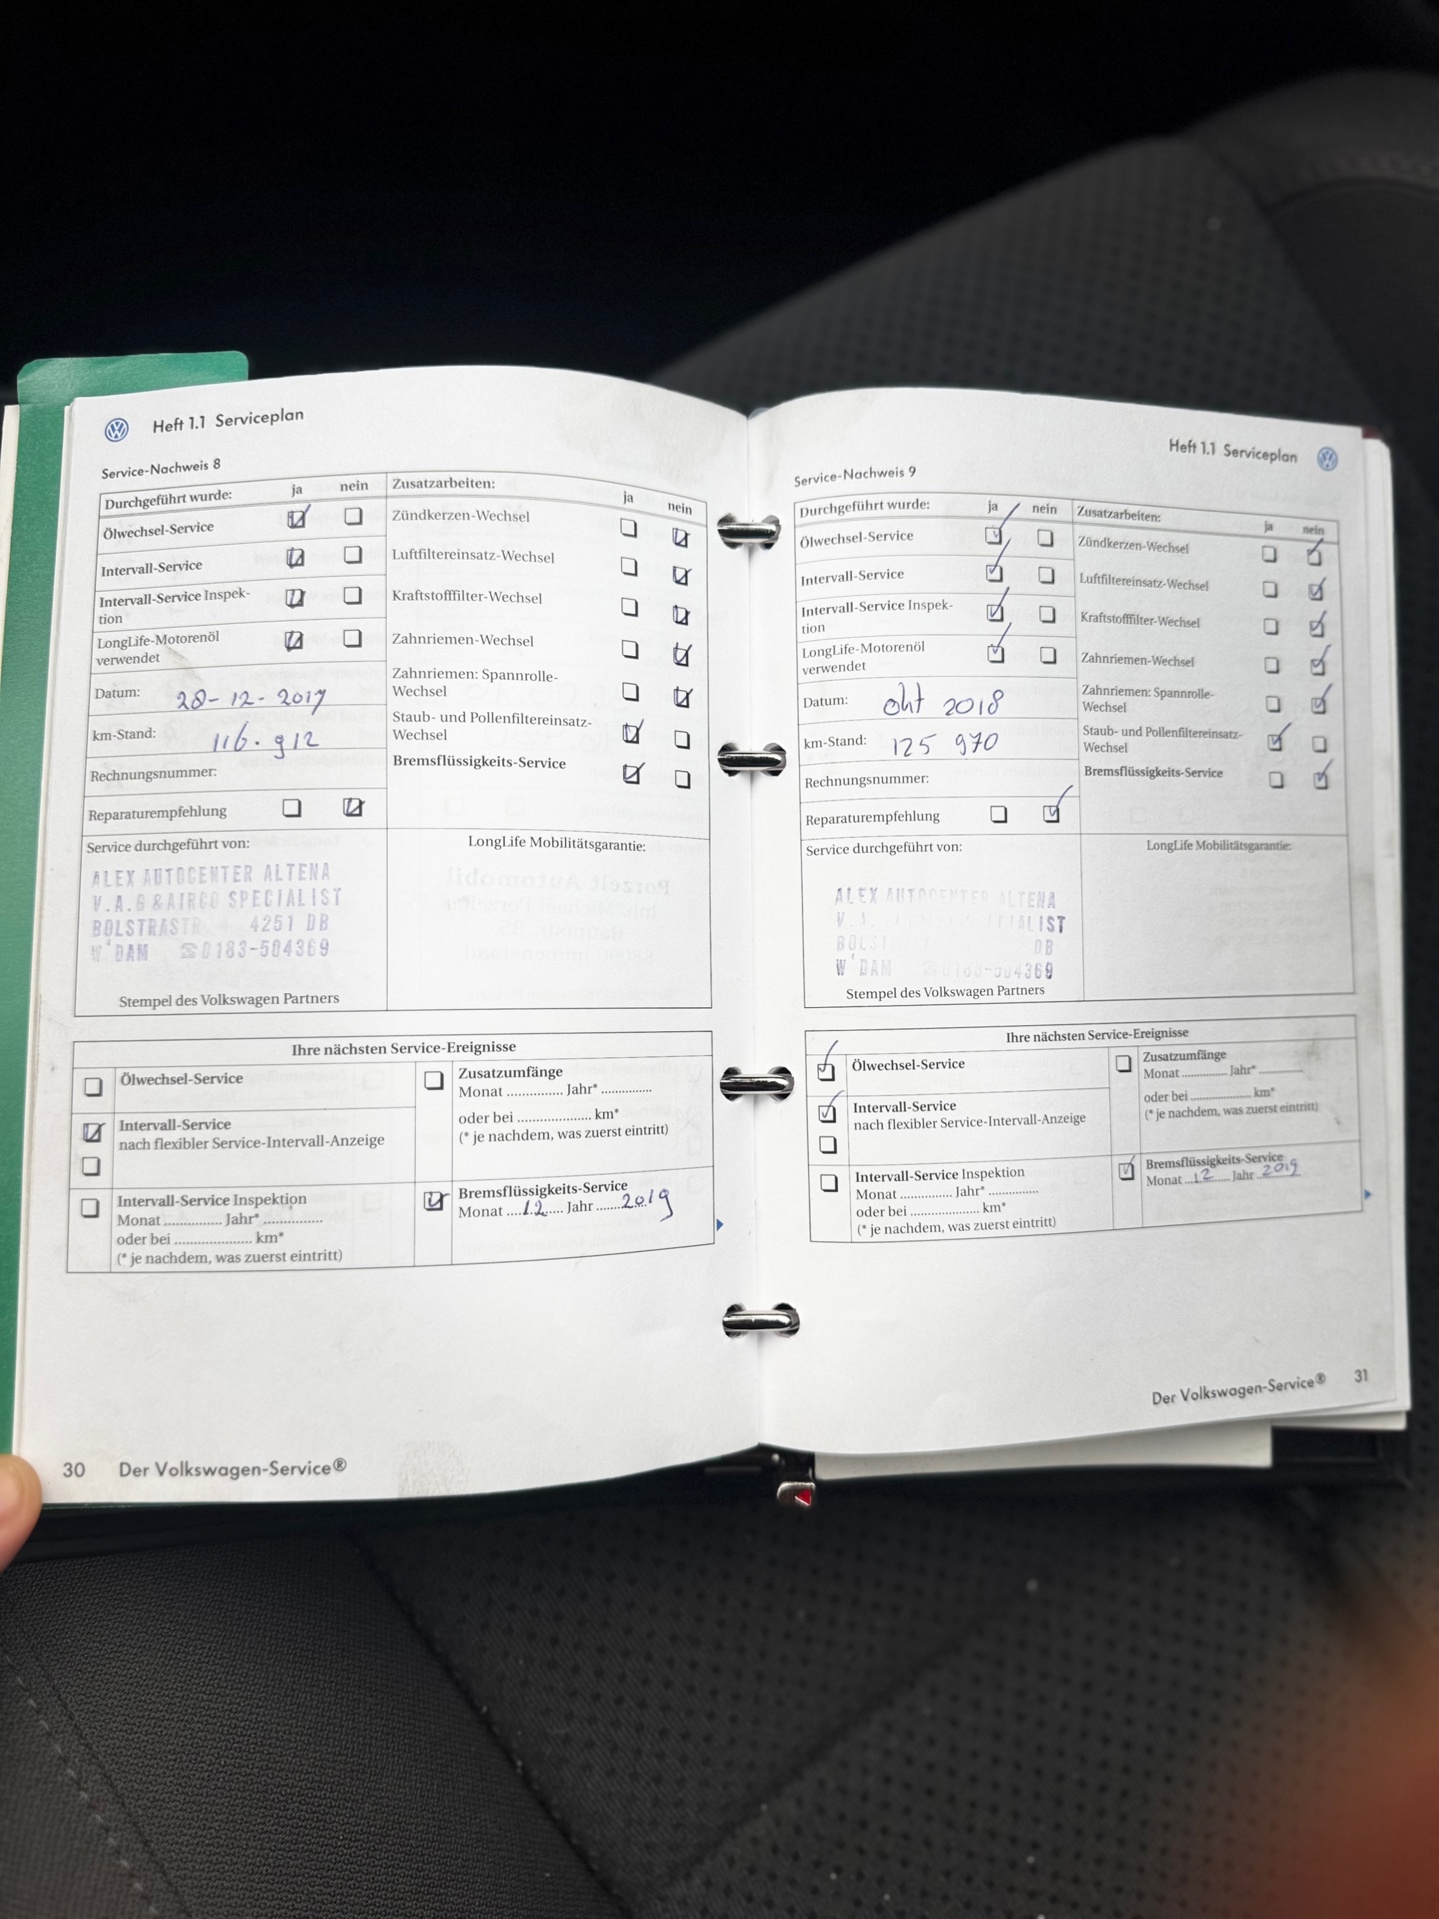 Heft 1.1 Serviceplan
Service-Nachweis 8
Durchgeführt wurde: ja nein
Ölwechsel-Service
Intervall-Service
Intervall-Service Inspek-
tion
LongLife-Motorenöl
verwendet
Datum: 28-12-2017
km-Stand: 116.912
Rechnungsnummer:
Reparaturempfehlung
Zusatzarbeiten: ja nein
Zündkerzen-Wechsel
Luftfiltereinsatz-Wechsel
Kraftstofffilter-Wechsel
Zahnriemen-Wechsel
Zahnriemen: Spannrolle-
Wechsel
Staub- und Pollenfiltereinsatz-
Wechsel
Bremsflüssigkeits-Service
Service durchgeführt von:
ALEX AUTOCENTER ALTENA
V.A.G &AIRCO SPECIALIST
4251 DB
W'DAM ☎0183-504369
Stempel des Volkswagen Partners
LongLife Mobilitätsgarantie:
Ihre nächsten Service-Ereignisse
Ölwechsel-Service
Intervall-Service
nach flexibler Service-Intervall-Anzeige
Intervall-Service Inspektion
Monat .............. Jahr* ..............
oder bei ................... km*
(* je nachdem, was zuerst eintritt)
Zusatzumfänge
Monat .............. Jahr* .............
oder bei ................... km*
(* je nachdem, was zuerst eintritt)
Bremsflüssigkeits-Service
Monat ....12.... Jahr .......2019
30 Der Volkswagen-Service®
Heft 1.1 Serviceplan
Service-Nachweis 9
Durchgeführt wurde: ja nein
Ölwechsel-Service
Intervall-Service
Intervall-Service Inspek-
tion
LongLife-Motorenöl
verwendet
Datum: okt 2018
km-Stand: 125 970
Rechnungsnummer:
Reparaturempfehlung
Zusatzarbeiten: ja nein
Zündkerzen-Wechsel
Luftfiltereinsatz-Wechsel
Kraftstofffilter-Wechsel
Zahnriemen-Wechsel
Zahnriemen: Spannrolle-
Wechsel
Staub- und Pollenfiltereinsatz-
Wechsel
Bremsflüssigkeits-Service
Service durchgeführt von:
ALEX AUTOCENTER ALTENA
DB
W'DAM
Stempel des Volkswagen Partners
LongLife Mobilitätsgarantie:
Ihre nächsten Service-Ereignisse
Ölwechsel-Service
Intervall-Service
nach flexibler Service-Intervall-Anzeige
Intervall-Service Inspektion
Monat .............. Jahr* ..............
oder bei ................... km*
(* je nachdem, was zuerst eintritt)
Zusatzumfänge
Monat .............. Jahr* .............
oder bei ................... km*
(* je nachdem, was zuerst eintritt)
Bremsflüssigkeits-Service
Monat ...12..... Jahr ..2019
Der Volkswagen-Service® 31